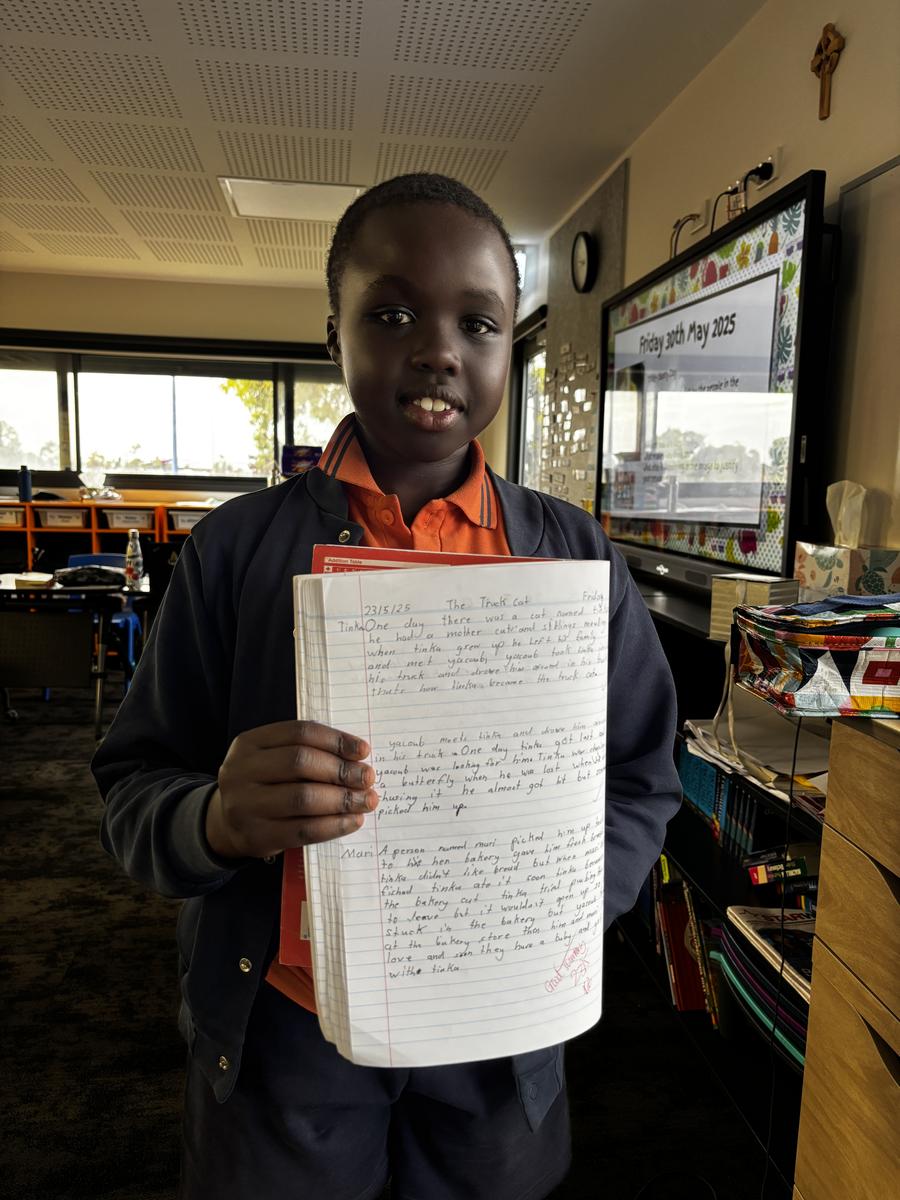 Friday 30th May 2025
the people in the
to justify
Addition Table
23/5/25 The Truck cat Friday
Tinka One day there was a cat named
he had a mother cat and siblings
when tinka grew up he left his family
and met yacoub, yacoub took tinka
his truck and drove him around in his
thats how tinka became the truck cat.
yacoub meets tinka and drove him
in his truck. One day tinka got lost
yacoub was looking for him. Tinka was
a butterfly when he was lost when
chasing it he almost got hit but
picked him up.
Mari A person named mari picked him up
to hen bakery gave him fresh
tinka didn't like bread but when
fichad tinka ate it soon tinka
the bakery cat tinka tried
to leave but it wouldn't open
stuck in the bakery but
at the bakery store then him and
love and soon they have a baby and
with tinka